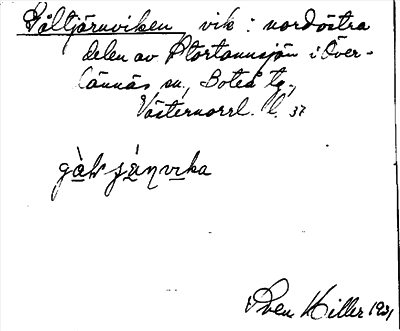 Gåltjärnviken vik i nordöstra
delen av Stortannsjön i Över-
Lännäs sn., Boteå tg.,
Västernorrl. l. 37
Sven Hiller 1931